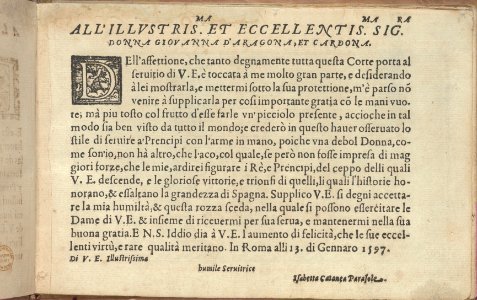 ALL'ILLVSTRIS.MA ET ECCELLENTIS.MA SIG.RA
DONNA GIOVANNA D'ARAGONA, ET CARDONA.
DEll'affettione, che tanto degnamente tutta questa Corte porta al
seruitio di V. E. è toccata à me molto gran parte, e desiderando
à lei mostrarla, e mettermi sotto la sua protettione, m'è parso nō
venire à supplicarla per cosi importante gratia cō le mani vuo-
te; mà piu tosto col frutto d'esse farle vn' picciolo presente, accioche in tal
modo sia ben visto da tutto il mondo; e crederò in questo hauer osseruato lo
stile di seruire a' Prencipi con l'arme in mano, poiche vna debol Donna, co-
me son'io, non hà altro, che l'aco, col quale, se però non fosse impresa di mag
giori forze, che le mie, ardirei figurare i Rè, e Prencipi, del ceppo delli quali
V. E. descende, e le gloriose vittorie, e trionfi di quelli, li quali l'historie ho-
norano, & essaltano la grandezza di Spagna. Supplico V. E. si degni accetta-
re la mia humiltà, & questa rozza seda, nella quale si possono essercitare le
Dame di V. E. & insieme di riceuermi per sua serua, e mantenermi nella sua
buona gratia. E N. S. Iddio dia à V. E. l'aumento di felicità, che le sue eccel-
lenti virtù, e rare qualità meritano. In Roma alli 13. di Gennaro 1597.
Di V. E. Illustrissima
humile Seruitrice
Isabetta Catanea Parasole.